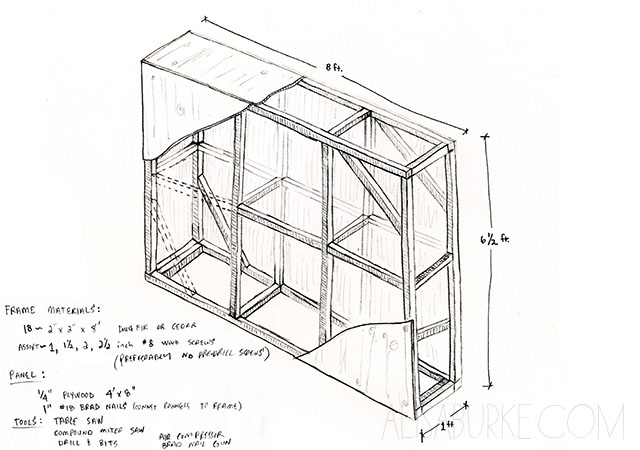 8 ft.
6 1/2 ft.
1 ft
FRAME MATERIALS:
18 ~ 2" x 2" x 8" DOUG FIR OR CEDAR
ASSORT ~ 1, 1 1/2, 2, 2 1/2 inch #8 WOOD SCREWS
(PREFERABLY NO PRE-DRILL SCREWS)
PANEL:
1/4" PLYWOOD 4' x 8"
1" #18 BRAD NAILS (CONNECT PANELS TO FRAME)
TOOLS: TABLE SAW
COMPOUND MITER SAW
DRILL & BITS
AIR COMPRESSOR
BRAD NAIL GUN
BURKE.COM